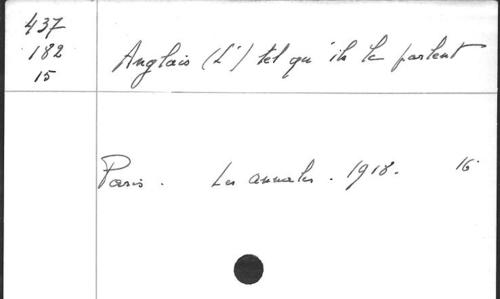 437
182
15
Anglais (L') tel qu'ils le parlent
Paris. Les annales. 1918. 16